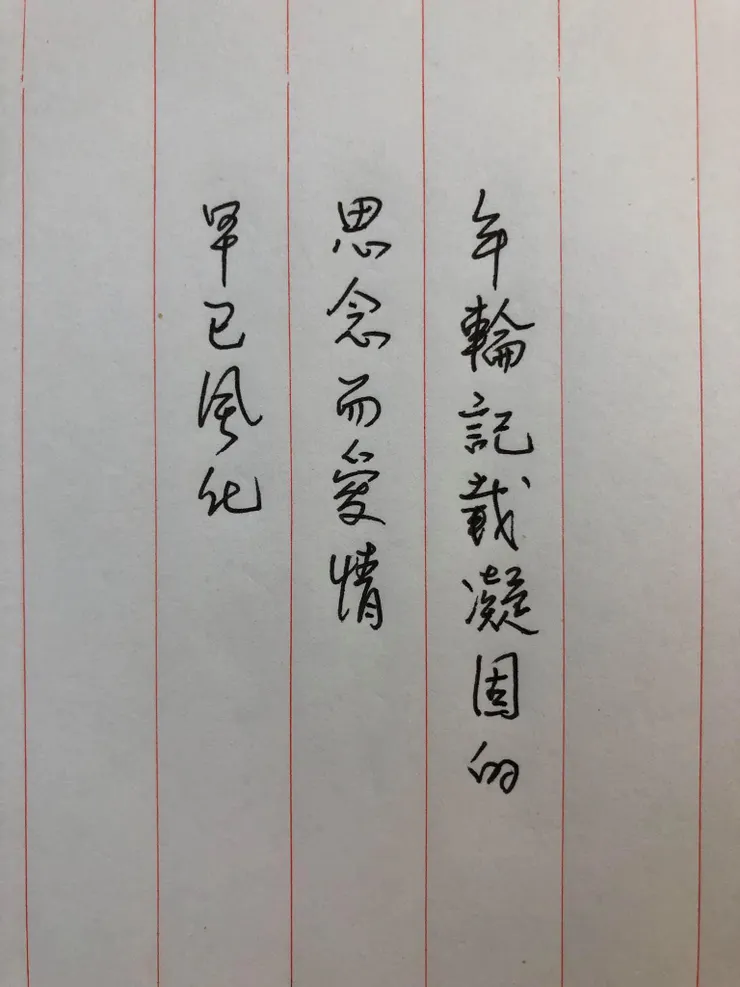 年輪記載凝固的
思念而愛情
早已風化